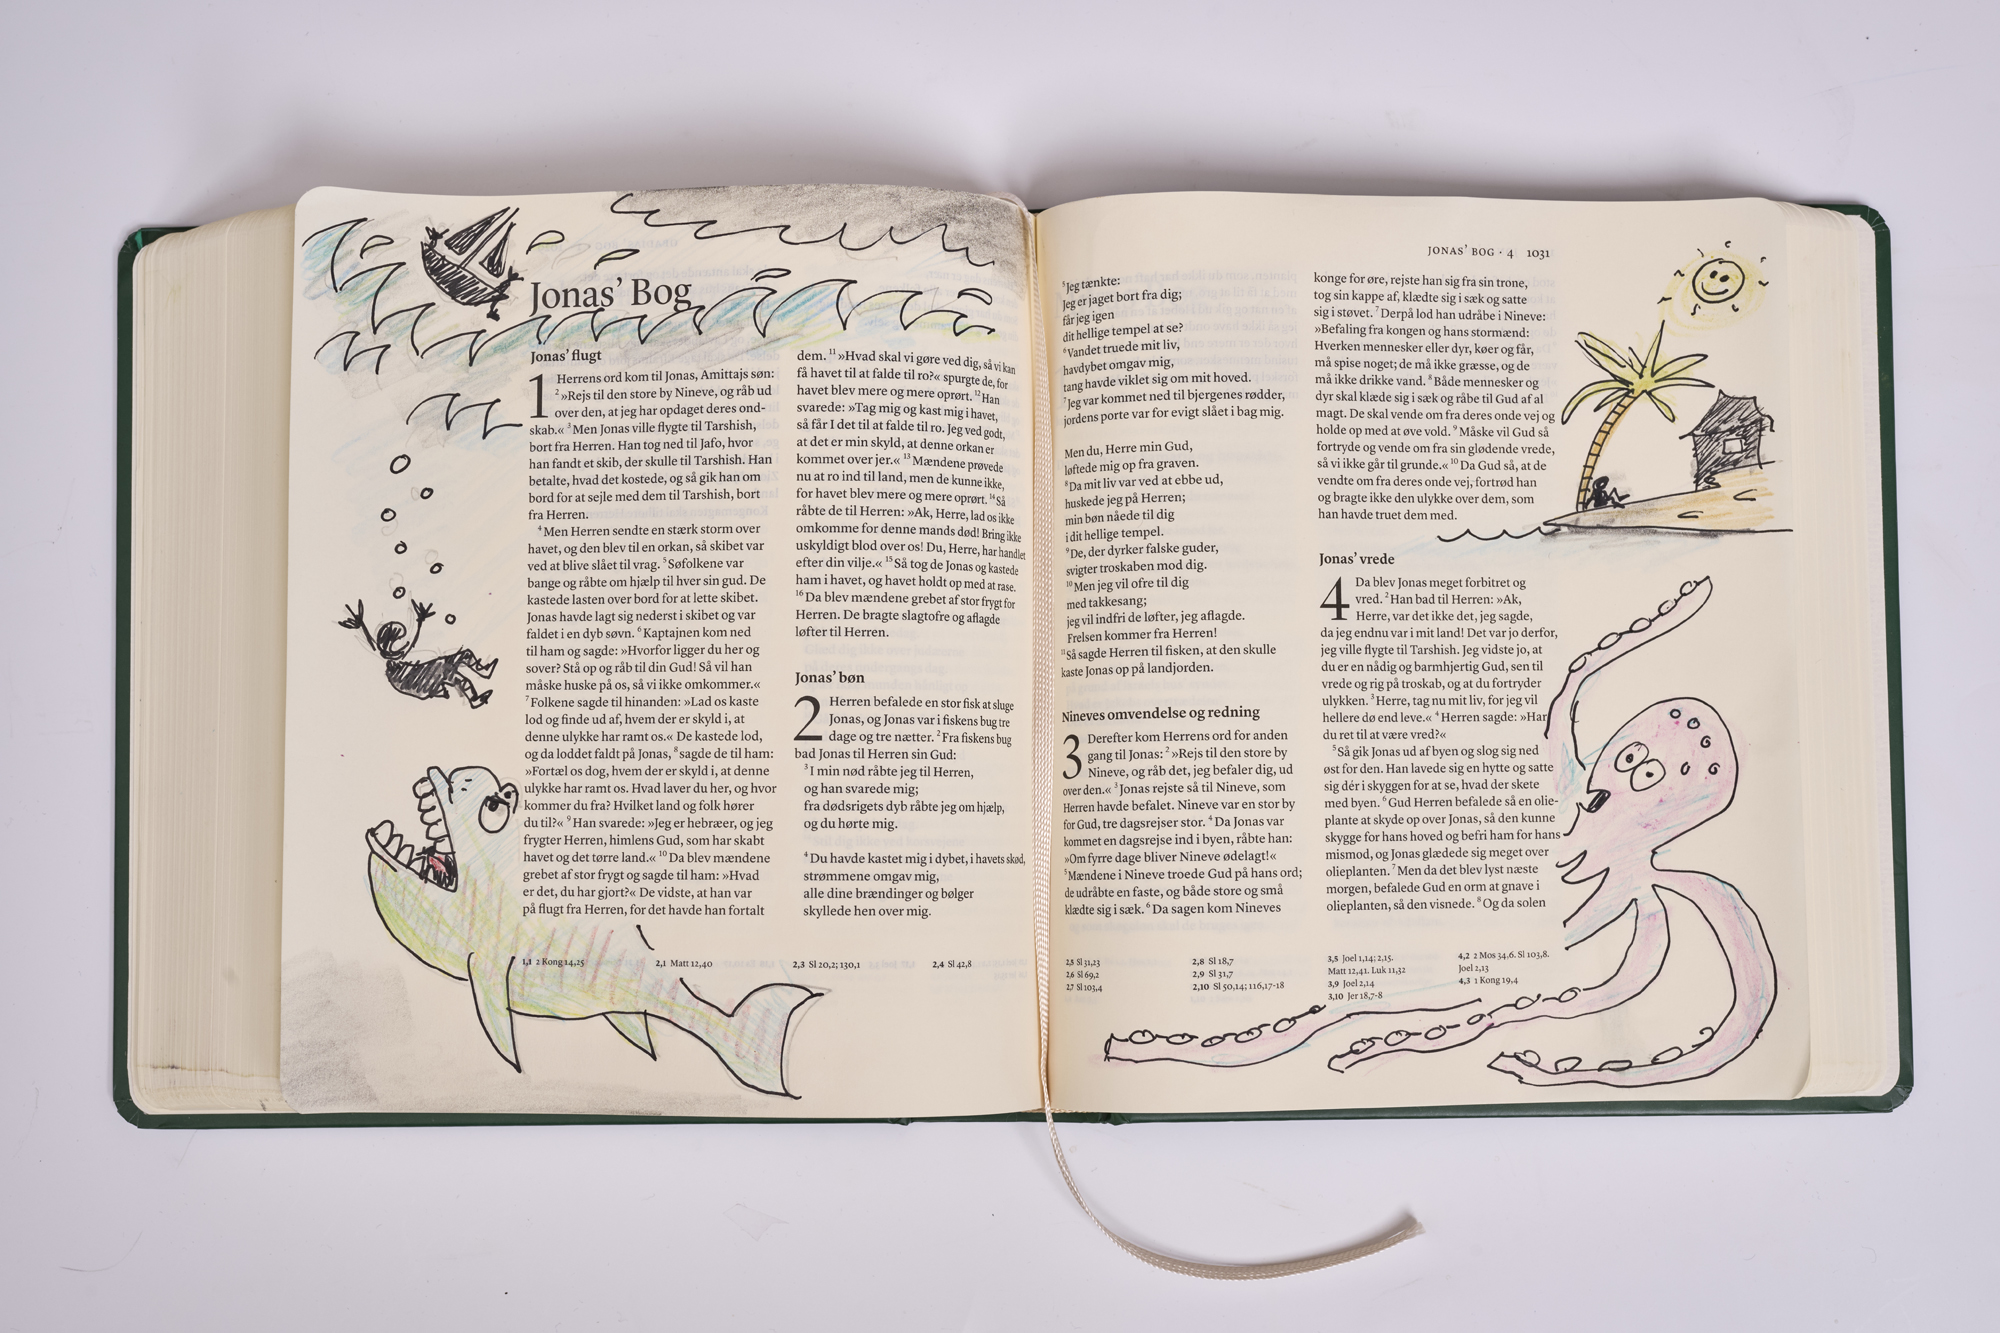 Jonas' Bog
Jonas' flugt
1 Herrens ord kom til Jonas, Amittajs søn:
2 »Rejs til den store by Nineve, og råb ud
over den, at jeg har opdaget deres ond-
skab.« 3 Men Jonas ville flygte til Tarshish,
bort fra Herren. Han tog ned til Jafo, hvor
han fandt et skib, der skulle til Tarshish. Han
betalte, hvad det kostede, og så gik han om
bord for at sejle med dem til Tarshish, bort
fra Herren.
4 Men Herren sendte en stærk storm over
havet, og den blev til en orkan, så skibet var
ved at blive slået til vrag. 5 Søfolkene var
bange og råbte om hjælp til hver sin gud. De
kastede lasten over bord for at lette skibet.
Jonas havde lagt sig nederst i skibet og var
faldet i en dyb søvn. 6 Kaptajnen kom ned
til ham og sagde: »Hvorfor ligger du her og
sover? Stå op og råb til din Gud! Så vil han
måske huske på os, så vi ikke omkommer.«
7 Folkene sagde til hinanden: »Lad os kaste
lod og finde ud af, hvem der er skyld i, at
denne ulykke har ramt os.« De kastede lod,
og da loddet faldt på Jonas, 8 sagde de til ham:
»Fortæl os dog, hvem der er skyld i, at denne
ulykke har ramt os. Hvad laver du her, og hvor
kommer du fra? Hvilket land og folk hører
du til?« 9 Han svarede: »Jeg er hebræer, og jeg
frygter Herren, himlens Gud, som har skabt
havet og det tørre land.« 10 Da blev mændene
grebet af stor frygt og sagde til ham: »Hvad
er det, du har gjort?« De vidste, at han var
på flugt fra Herren, for det havde han fortalt
dem. 11 »Hvad skal vi gøre ved dig, så vi kan
få havet til at falde til ro?« spurgte de, for
havet blev mere og mere oprørt. 12 Han
svarede: »Tag mig og kast mig i havet,
så får I det til at falde til ro. Jeg ved godt,
at det er min skyld, at denne orkan er
kommet over jer.« 13 Mændene prøvede
nu at ro ind til land, men de kunne ikke,
for havet blev mere og mere oprørt. 14 Så
råbte de til Herren: »Ak, Herre, lad os ikke
omkomme for denne mands død! Bring ikke
uskyldigt blod over os! Du, Herre, har handlet
efter din vilje.« 15 Så tog de Jonas og kastede
ham i havet, og havet holdt op med at rase.
16 Da blev mændene grebet af stor frygt for
Herren. De bragte slagtofre og aflagde
løfter til Herren.
Jonas' bøn
2 Herren befalede en stor fisk at sluge
Jonas, og Jonas var i fiskens bug tre
dage og tre nætter. 2 Fra fiskens bug
bad Jonas til Herren sin Gud:
3 I min nød råbte jeg til Herren,
og han svarede mig;
fra dødsrigets dyb råbte jeg om hjælp,
og du hørte mig.
4 Du havde kastet mig i dybet, i havets skød,
strømmene omgav mig,
alle dine brændinger og bølger
skyllede hen over mig.
1,1 2 Kong 14,25
2,1 Matt 12,40
2,3 Sl 20,2; 130,1
2,4 Sl 42,8
JONAS' BOG · 4 1031
5 Jeg tænkte:
Jeg er jaget bort fra dig;
får jeg igen
dit hellige tempel at se?
6 Vandet truede mit liv,
havdybet omgav mig,
tang havde viklet sig om mit hoved.
7 Jeg var kommet ned til bjergenes rødder,
jordens porte var for evigt slået i bag mig.
Men du, Herre min Gud,
løftede mig op fra graven.
8 Da mit liv var ved at ebbe ud,
huskede jeg på Herren;
min bøn nåede til dig
i dit hellige tempel.
9 De, der dyrker falske guder,
svigter troskaben mod dig.
10 Men jeg vil ofre til dig
med takkesang;
jeg vil indfri de løfter, jeg aflagde.
Frelsen kommer fra Herren!
11 Så sagde Herren til fisken, at den skulle
kaste Jonas op på landjorden.
Nineves omvendelse og redning
3 Derefter kom Herrens ord for anden
gang til Jonas: 2 »Rejs til den store by
Nineve, og råb det, jeg befaler dig, ud
over den.« 3 Jonas rejste så til Nineve, som
Herren havde befalet. Nineve var en stor by
for Gud, tre dagsrejser stor. 4 Da Jonas var
kommet en dagsrejse ind i byen, råbte han:
»Om fyrre dage bliver Nineve ødelagt!«
5 Mændene i Nineve troede Gud på hans ord;
de udråbte en faste, og både store og små
klædte sig i sæk. 6 Da sagen kom Nineves
konge for øre, rejste han sig fra sin trone,
tog sin kappe af, klædte sig i sæk og satte
sig i støvet. 7 Derpå lod han udråbe i Nineve:
»Befaling fra kongen og hans stormænd:
Hverken mennesker eller dyr, køer og får,
må spise noget; de må ikke græsse, og de
må ikke drikke vand. 8 Både mennesker og
dyr skal klæde sig i sæk og råbe til Gud af al
magt. De skal vende om fra deres onde vej og
holde op med at øve vold. 9 Måske vil Gud så
fortryde og vende om fra sin glødende vrede,
så vi ikke går til grunde.« 10 Da Gud så, at de
vendte om fra deres onde vej, fortrød han
og bragte ikke den ulykke over dem, som
han havde truet dem med.
Jonas' vrede
4 Da blev Jonas meget forbitret og
vred. 2 Han bad til Herren: »Ak,
Herre, var det ikke det, jeg sagde,
da jeg endnu var i mit land! Det var jo derfor,
jeg ville flygte til Tarshish. Jeg vidste jo, at
du er en nådig og barmhjertig Gud, sen til
vrede og rig på troskab, og at du fortryder
ulykken. 3 Herre, tag nu mit liv, for jeg vil
hellere dø end leve.« 4 Herren sagde: »Har
du ret til at være vred?«
5 Så gik Jonas ud af byen og slog sig ned
øst for den. Han lavede sig en hytte og satte
sig dér i skyggen for at se, hvad der skete
med byen. 6 Gud Herren befalede så en olie-
plante at skyde op over Jonas, så den kunne
skygge for hans hoved og befri ham for hans
mismod, og Jonas glædede sig meget over
olieplanten. 7 Men da det blev lyst næste
morgen, befalede Gud en orm at gnave i
olieplanten, så den visnede. 8 Og da solen
2,5 Sl 31,23
2,6 Sl 69,2
2,7 Sl 103,4
2,8 Sl 18,7
2,9 Sl 31,7
2,10 Sl 50,14; 116,17-18
3,5 Joel 1,14; 2,15.
Matt 12,41. Luk 11,32
3,9 Joel 2,14
3,10 Jer 18,7-8
4,2 2 Mos 34,6. Sl 103,8.
Joel 2,13
4,3 1 Kong 19,4